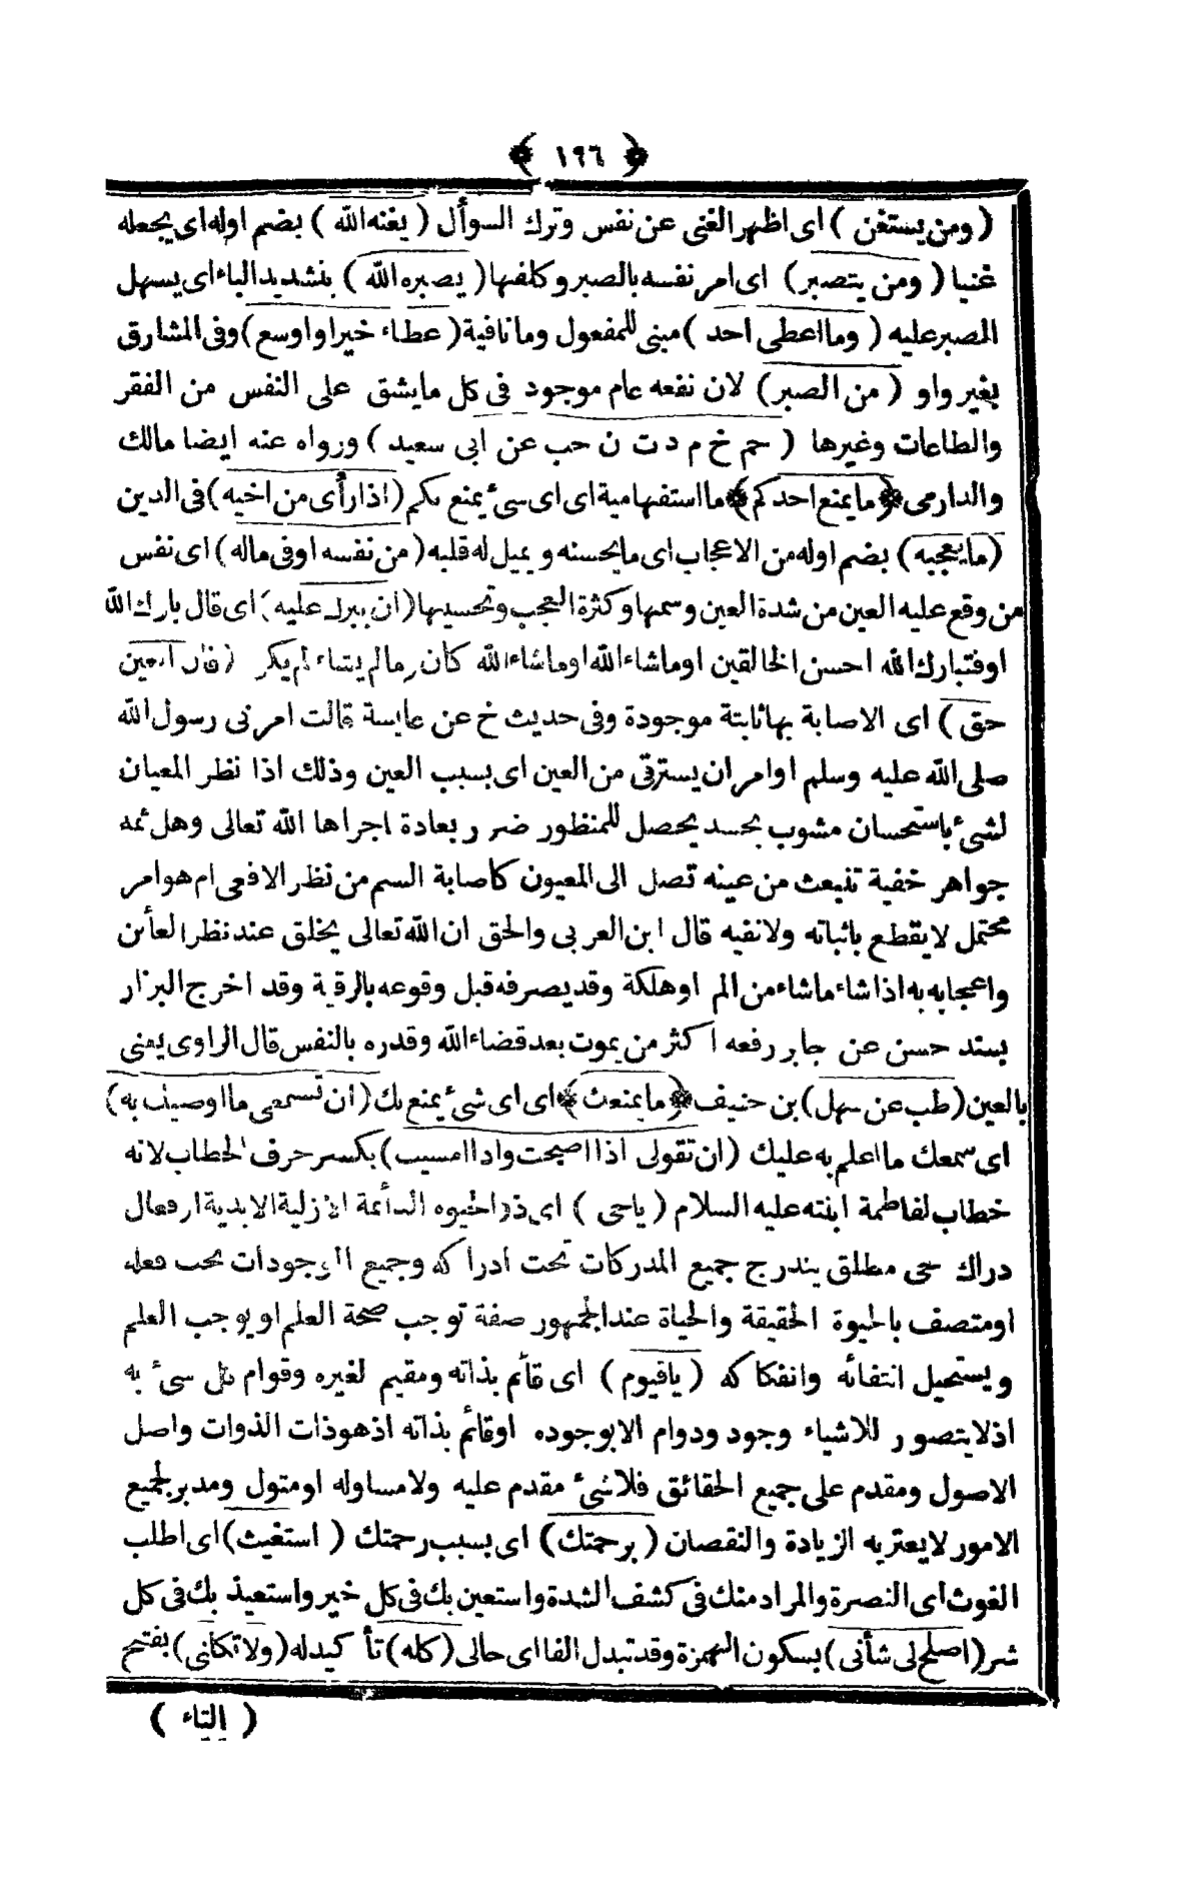 ﴿ ١٩٦ ﴾
( ومن يستغن ) اى اظهر الغنى عن نفس وترك السوأل ( يغنه الله ) بضم اوله اى يجعله
غنيا ( ومن يتصبر ) اى امر نفسه بالصبر وكلفها ( يصبره الله ) بتشديد الباء اى يسهل
الصبر عليه ( وما اعطى احد ) مبنى للمفعول وما نافية ( عطاء خيرا واوسع ) وفى المشارق
بغير واو ( من الصبر ) لان نفعه عام موجود فى كل مايشق على النفس من الفقر
والطاعات وغيرها ( حم خ م د ت ن حب عن ابى سعيد ) ورواه عنه ايضا مالك
والدارمى ﴿ ما يمنع احدكم ﴾ ما استفهامية اى اى شئ يمنع بكم ( اذا رأى من اخيه ) فى الدين
( ما يعجبه ) بضم اوله من الاعجاب اى مايحسنه ويميل له قلبه ( من نفسه او فى ماله ) اى نفس
من وقع عليه العين من شدة العين وسمها وكثرة العجب وتحسيدها ( ان يبرك عليه ) اى قال بارك الله
او فتبارك الله احسن الخالقين او ماشاء الله او ماشاء الله كان وما لم يشاء لم يكن ( فان العين
حق ) اى الاصابة بها ثابتة موجودة وفى حديث خ عن عايسة قالت امر نى رسول الله
صلى الله عليه وسلم او امر ان يسترقى من العين اى بسبب العين وذلك اذا نظر المعيان
لشئ باستحسان مشوب بحسد يحصل للمنظور ضرر بعادة اجراها الله تعالى وهل ثمه
جواهر خفية تنبعث من عينه تصل الى المعيون كاصابة السم من نظر الافعى ام هو امر
محتمل لا يقطع باثباته ولانفيه قال ابن العربى والحق ان الله تعالى يخلق عند نظر العأئن
واعجابه به اذا شاء ماشاء من الم او هلكة وقد يصرفه قبل وقوعه بالرقية وقد اخرج البزار
بسند حسن عن جابر رفعه اكثر من يموت بعد قضاء الله وقدره بالنفس قال الراوى يعنى
بالعين ( طب عن سهل ) بن حنيف ﴿ ما يمنعك ﴾ اى اى شئ يمنع بك ( ان تسمعى ما اوصيك به )
اى سمعك ما اعلم به عليك ( ان تقولى اذا اصبحت واذا امسيت ) بكسر حرف الخطاب لانه
خطاب لفاطمة ابنته عليه السلام ( ياحى ) اى ذو الحيوه الدأئمة الازلية الابدية او فعال
دراك حى مطلق يندرج جميع المدركات تحت ادراكه وجميع الموجودات تحت فعله
او متصف بالحيوة الحقيقة والحياة عند الجمهور صفة توجب صحة العلم او يوجب العلم
ويستحيل انتفائه وانفكاكه ( ياقيوم ) اى قائم بذاته ومقيم لغيره وقوام كل سئ به
اذ لا يتصور للاشياء وجود ودوام الا بوجوده او قائم بذاته اذ هو ذات الذوات واصل
الاصول ومقدم على جميع الحقائق فلا شئ مقدم عليه ولا مساو له او متول ومدبر لجميع
الامور لا يعتربه الزيادة والنقصان ( برحمتك ) اى بسبب رحمتك ( استغيث ) اى اطلب
الغوث اى النصرة والمراد منك فى كشف الشدة واستعين بك فى كل خير واستعيذ بك فى كل
شر ( اصلح لى شأنى ) بسكون الهمزة وقد تبدل الفا اى حالى ( كله ) تأكيد له ( ولا تكلنى ) بفتح
( التاء )